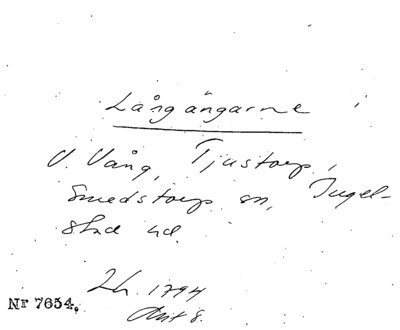 Långängarne i
V. Vång, Tjustorp,
Smedstorps sn, Ingel-
stad hd.
Lh. 1794
Akt 8.
Nr 7654.